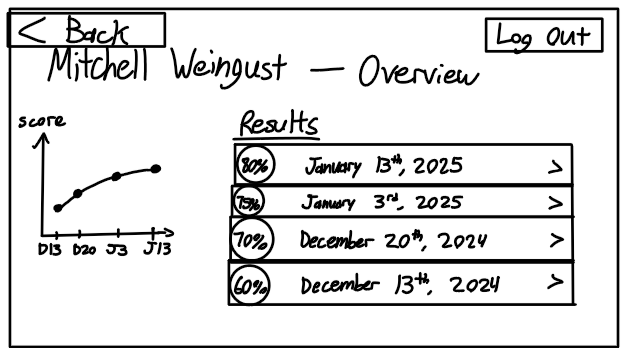 < Back
Log Out
Mitchell Weingust — Overview
score
D13 D20 J3 J13
Results
80% January 13th, 2025 >
75% January 3rd, 2025 >
70% December 20th, 2024 >
60% December 13th, 2024 >